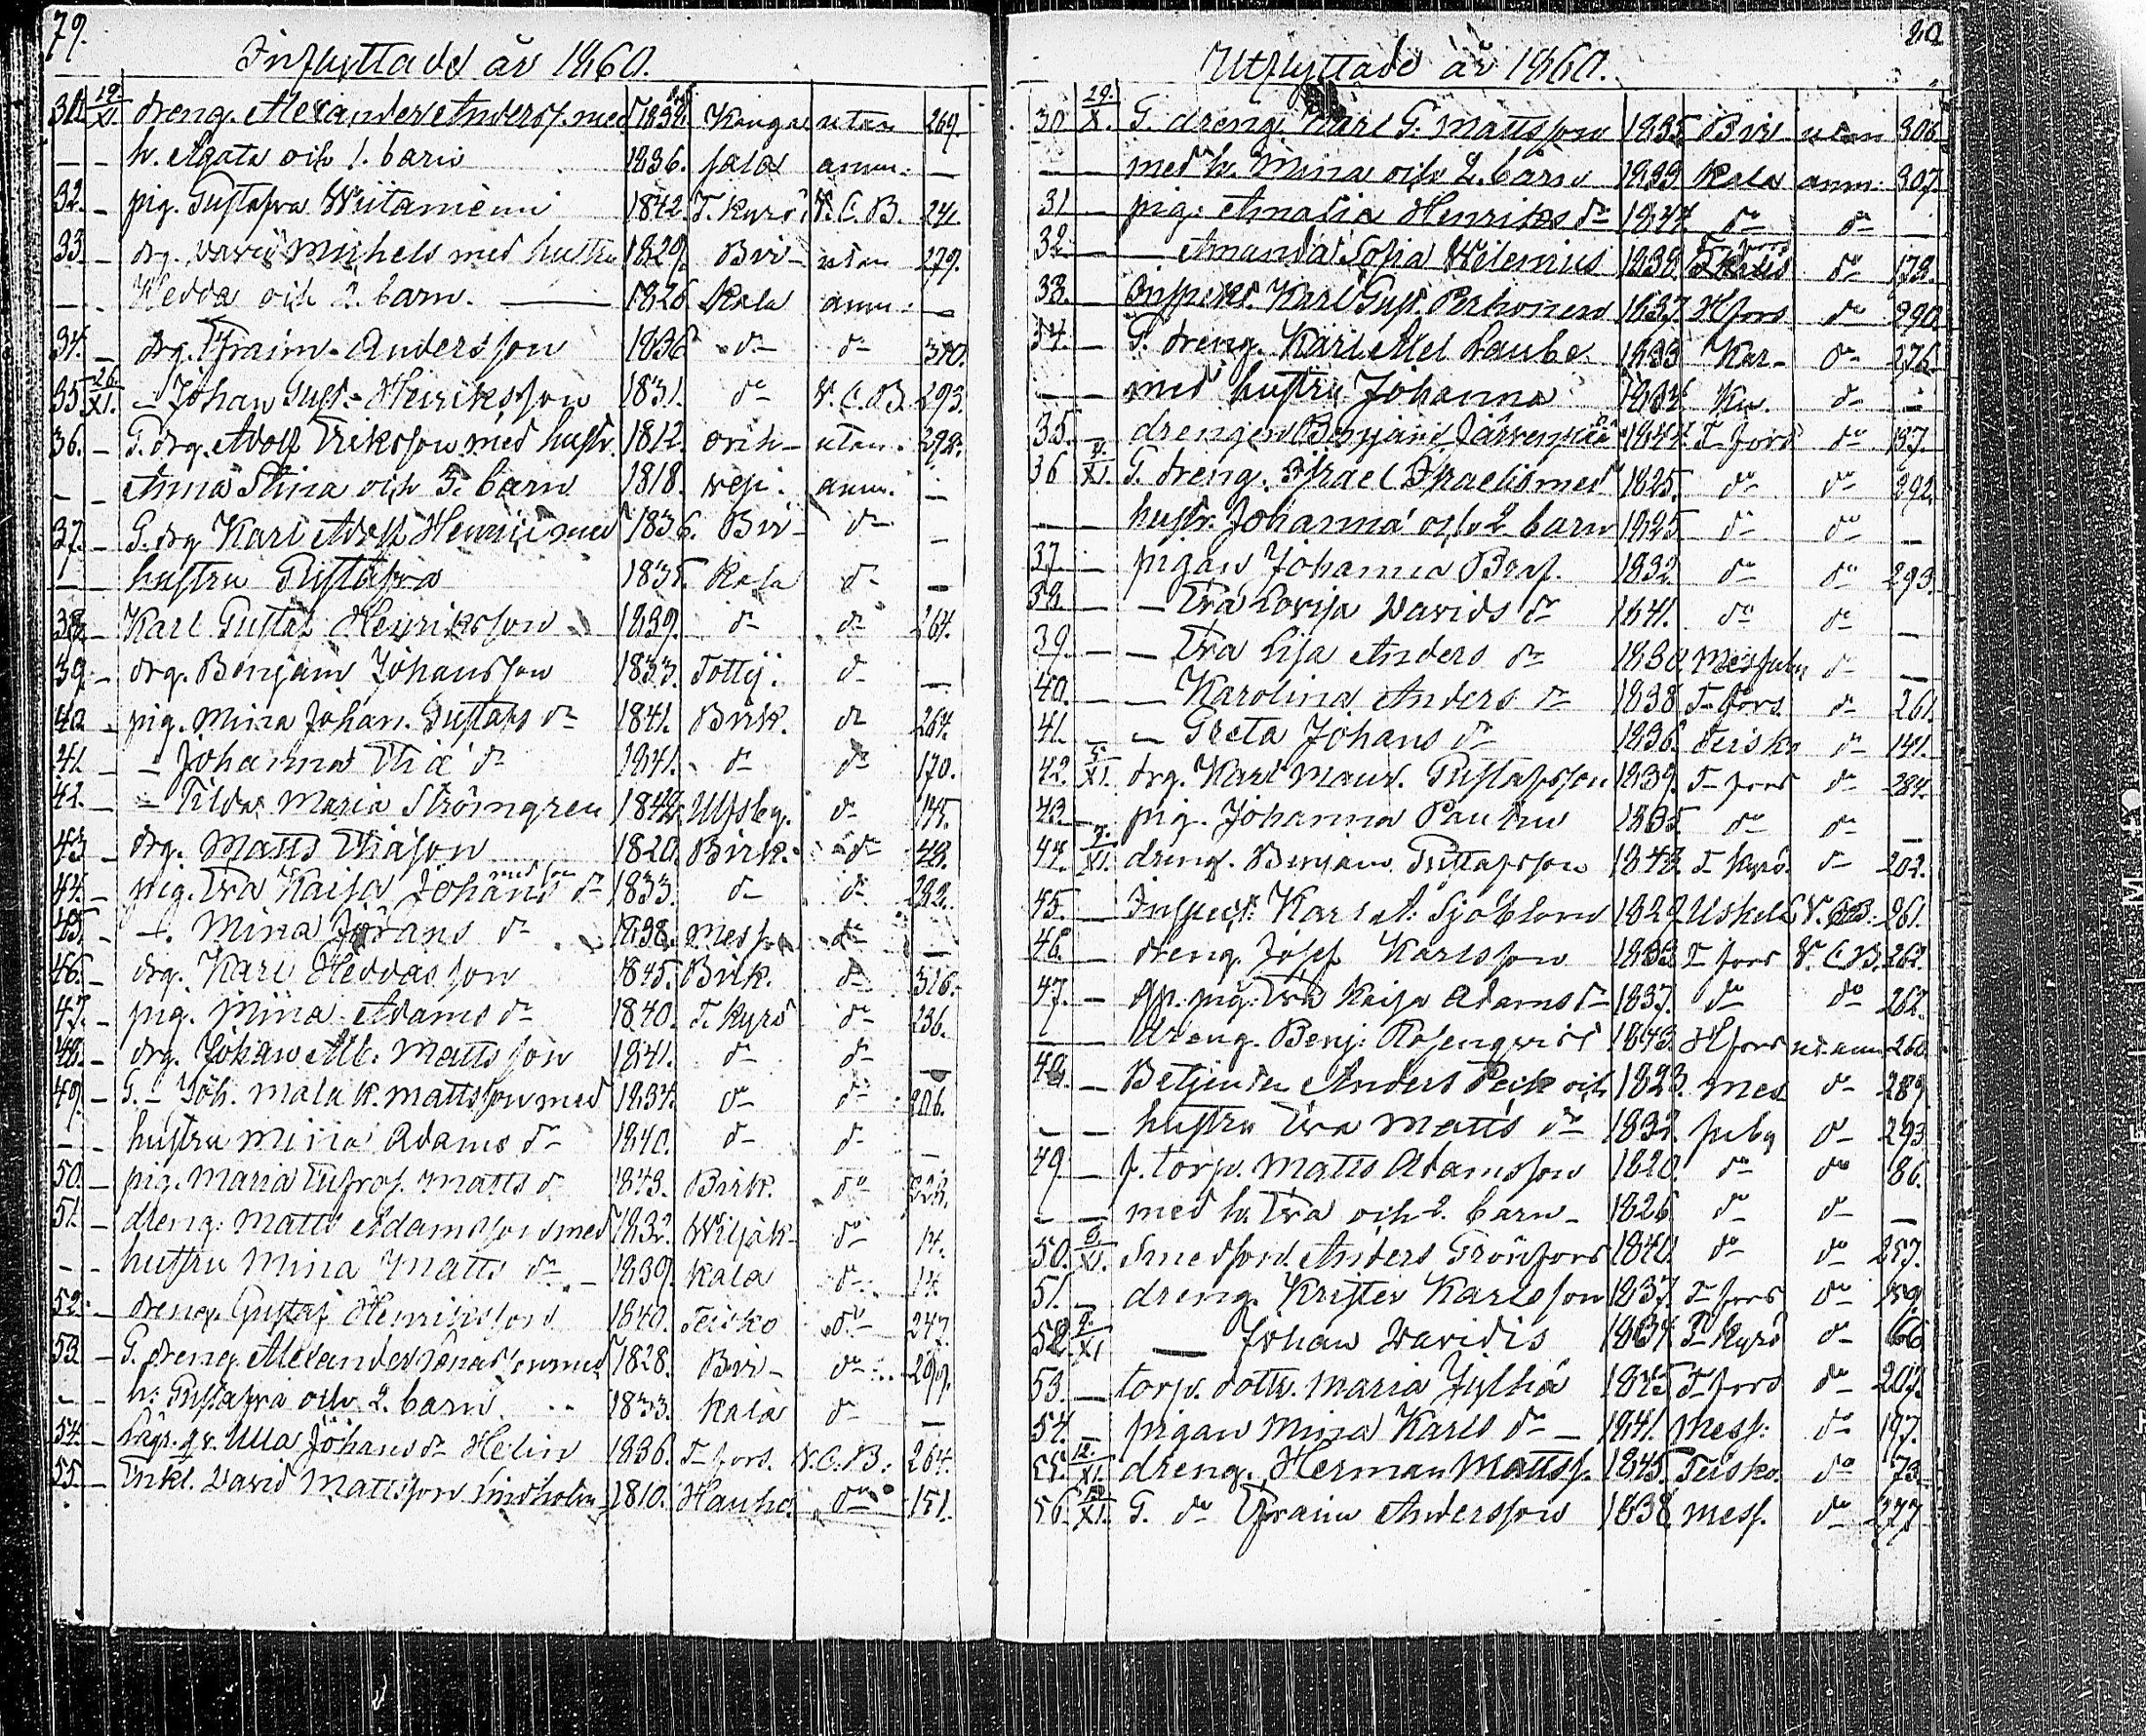 79.
Inflyttade år 1860.
31. 19/XI. dreng. Alexander Anderss. med 1832. Kanga utan 269.
— — h. Agata och 1. barn 1836. sala anm. —
32. — pig. Gustafva Wiitaniemi 1842. T. Kyrö V. C. B. 241.
33. — drg. David Michels med hustru 1829. Bir- utan 279.
— — Hedda och 2. barn. — 1826. kala anm. —
34. — drg. Efraim Andersson 1836 do do 310.
35. 26/XI. — Johan Gust. Henriksson 1831. do V. C. B. 293.
36. — G. drg. Adolf Eriksson med hustr. 1812. orih- utan 292.
— — Anna Stina och 5. barn 1818. vesi. anm. —
37. — G. drg Karl Adolf Henric med 1836. Bir- do —
— — hustru Gustafva 1835. kala do —
38. — Karl Gustaf Henriksson 1839. do do 264.
39. — drg. Benjam Johansson 1833. Tottij. do —
40. — pig. Mina Johan. Gustafs dr 1841. Birk. do 264.
41. — — Johanna dr 1841. do do 170.
42. — — Tilda Maria Strömgren 1842. Ulfsby. do 145.
43. — drg. Matts 1820. Birk. do 48.
44. — pig. Eva Kaisa Johans dr med son 1833. do do 282.
45. — — Mina Jörans dr 1838. Mess. do —
46. — drg. Karl Heddasson 1845. Birk. do 316.
47. — pig. Mina Adams dr 1840. T. Kyrö do 236.
48. — drg. Johan Alb. Mattsson 1841. do do —
49. — G. — Joh. Malak. Mattsson med 1834. do do 206.
— — hustru Mina Adams dr 1840. do do —
50. — pig. Maria Eufros. Matts dr 1843. Birk. do
51. — dreng. Matts Adamsson med 1832. Wiljak- do 14.
— — hustru Mina Matts dr — 1839. kala do 14.
52. — dreng. Gustaf Henriksson 1840. Teisko do 247.
53. — G. dreng. Alexander Jonasson med 1828. Bir- do 299.
— — h. Gustafva och 2. barn 1833. kala do —
54. — qv. Ulla Johans dr Helin 1836. T-fors. V. C. B. 264.
55. — Enkl. David Mattsson Lindholm 1810. Hauho. do 151.
80
Utflyttade år 1860.
30. 29/X. G. dreng. Karl G. Mattsson 1835. Bir utan 306.
— — med h. Mina och 2. barn 1833. kala anm. 307.
31 — pig. Amalia Henriks dr 1844. do do —
32. — — Amanda Sofia Helenius 1838. T fors do 178.
33. — Inspekt. Karl Gust. Pekonen 1837. Hfors do 290.
34. — G. dreng. Karl Axel Laube 1833. Kar- do 276.
— — med hustru Johanna 1834. Ku. do —
35. — drengen Benjam. Järvenpää 1844. T-fors do 137.
36 /XI. G. dreng. Israel Israels med 1825. do do 292.
— — hustr. Johanna och 2 barn 1825. do do —
37. — pigan Johanna Bras. 1832. do do 293.
38. — — Eva Lovisa Davids dr 1841. do do —
39. — — Eva Lisa Anders dr 1830. Messuby do —
40. — — Karolina Anders dr 1838. T-fors do 261.
41. — — Greta Johans dr 1836. Teisko do 141.
42. 5/XI. drg. Karl Maur. Gustafsson 1839. T-fors do 284.
43. — pig. Johanna Pauku 1835. do do —
44. /XI. dreng. Benjam. Gustafsson 1843. T-Kyrö do 202.
45. — Inspect. Karl A. Sjöblom 1829. Uskela V. C. B. 261.
46. — dreng. Josef Karlsson 1833. T-fors V. C. B. 262.
47. — pig. Eva Kaisa Adams dr 1837. do do 262.
— — dreng. Benj. Rosenqvist 1843. Hfors ut. anm. 260.
48. — Betjenten Anders Peck och 1823. Mes do 289.
— — hustru Eva Matts dr 1832. suby do 293.
49. — f. torp. Matts Adamsson 1820. do do 86.
— — med h. Eva och 2. barn — 1826. do do —
50. /XI. Smedson. Anders Grönfors 1840. do do 257.
51. — dreng. Krister Karlsson 1837. T-fors do 59.
52. 9/XI — Johan Davids 1834. T-Kyrö do 66.
53. — torp. dottr. Maria Jylhä 1845. T-fors do 207.
54. — pigan Mina Karls dr — 1841. Mess. do 197.
55. 12./XI. dreng. Herman Mattss. 1845. Teisko. do 73.
56. /XI. G. do Efraim Andersson 1838. Mess. do 277.